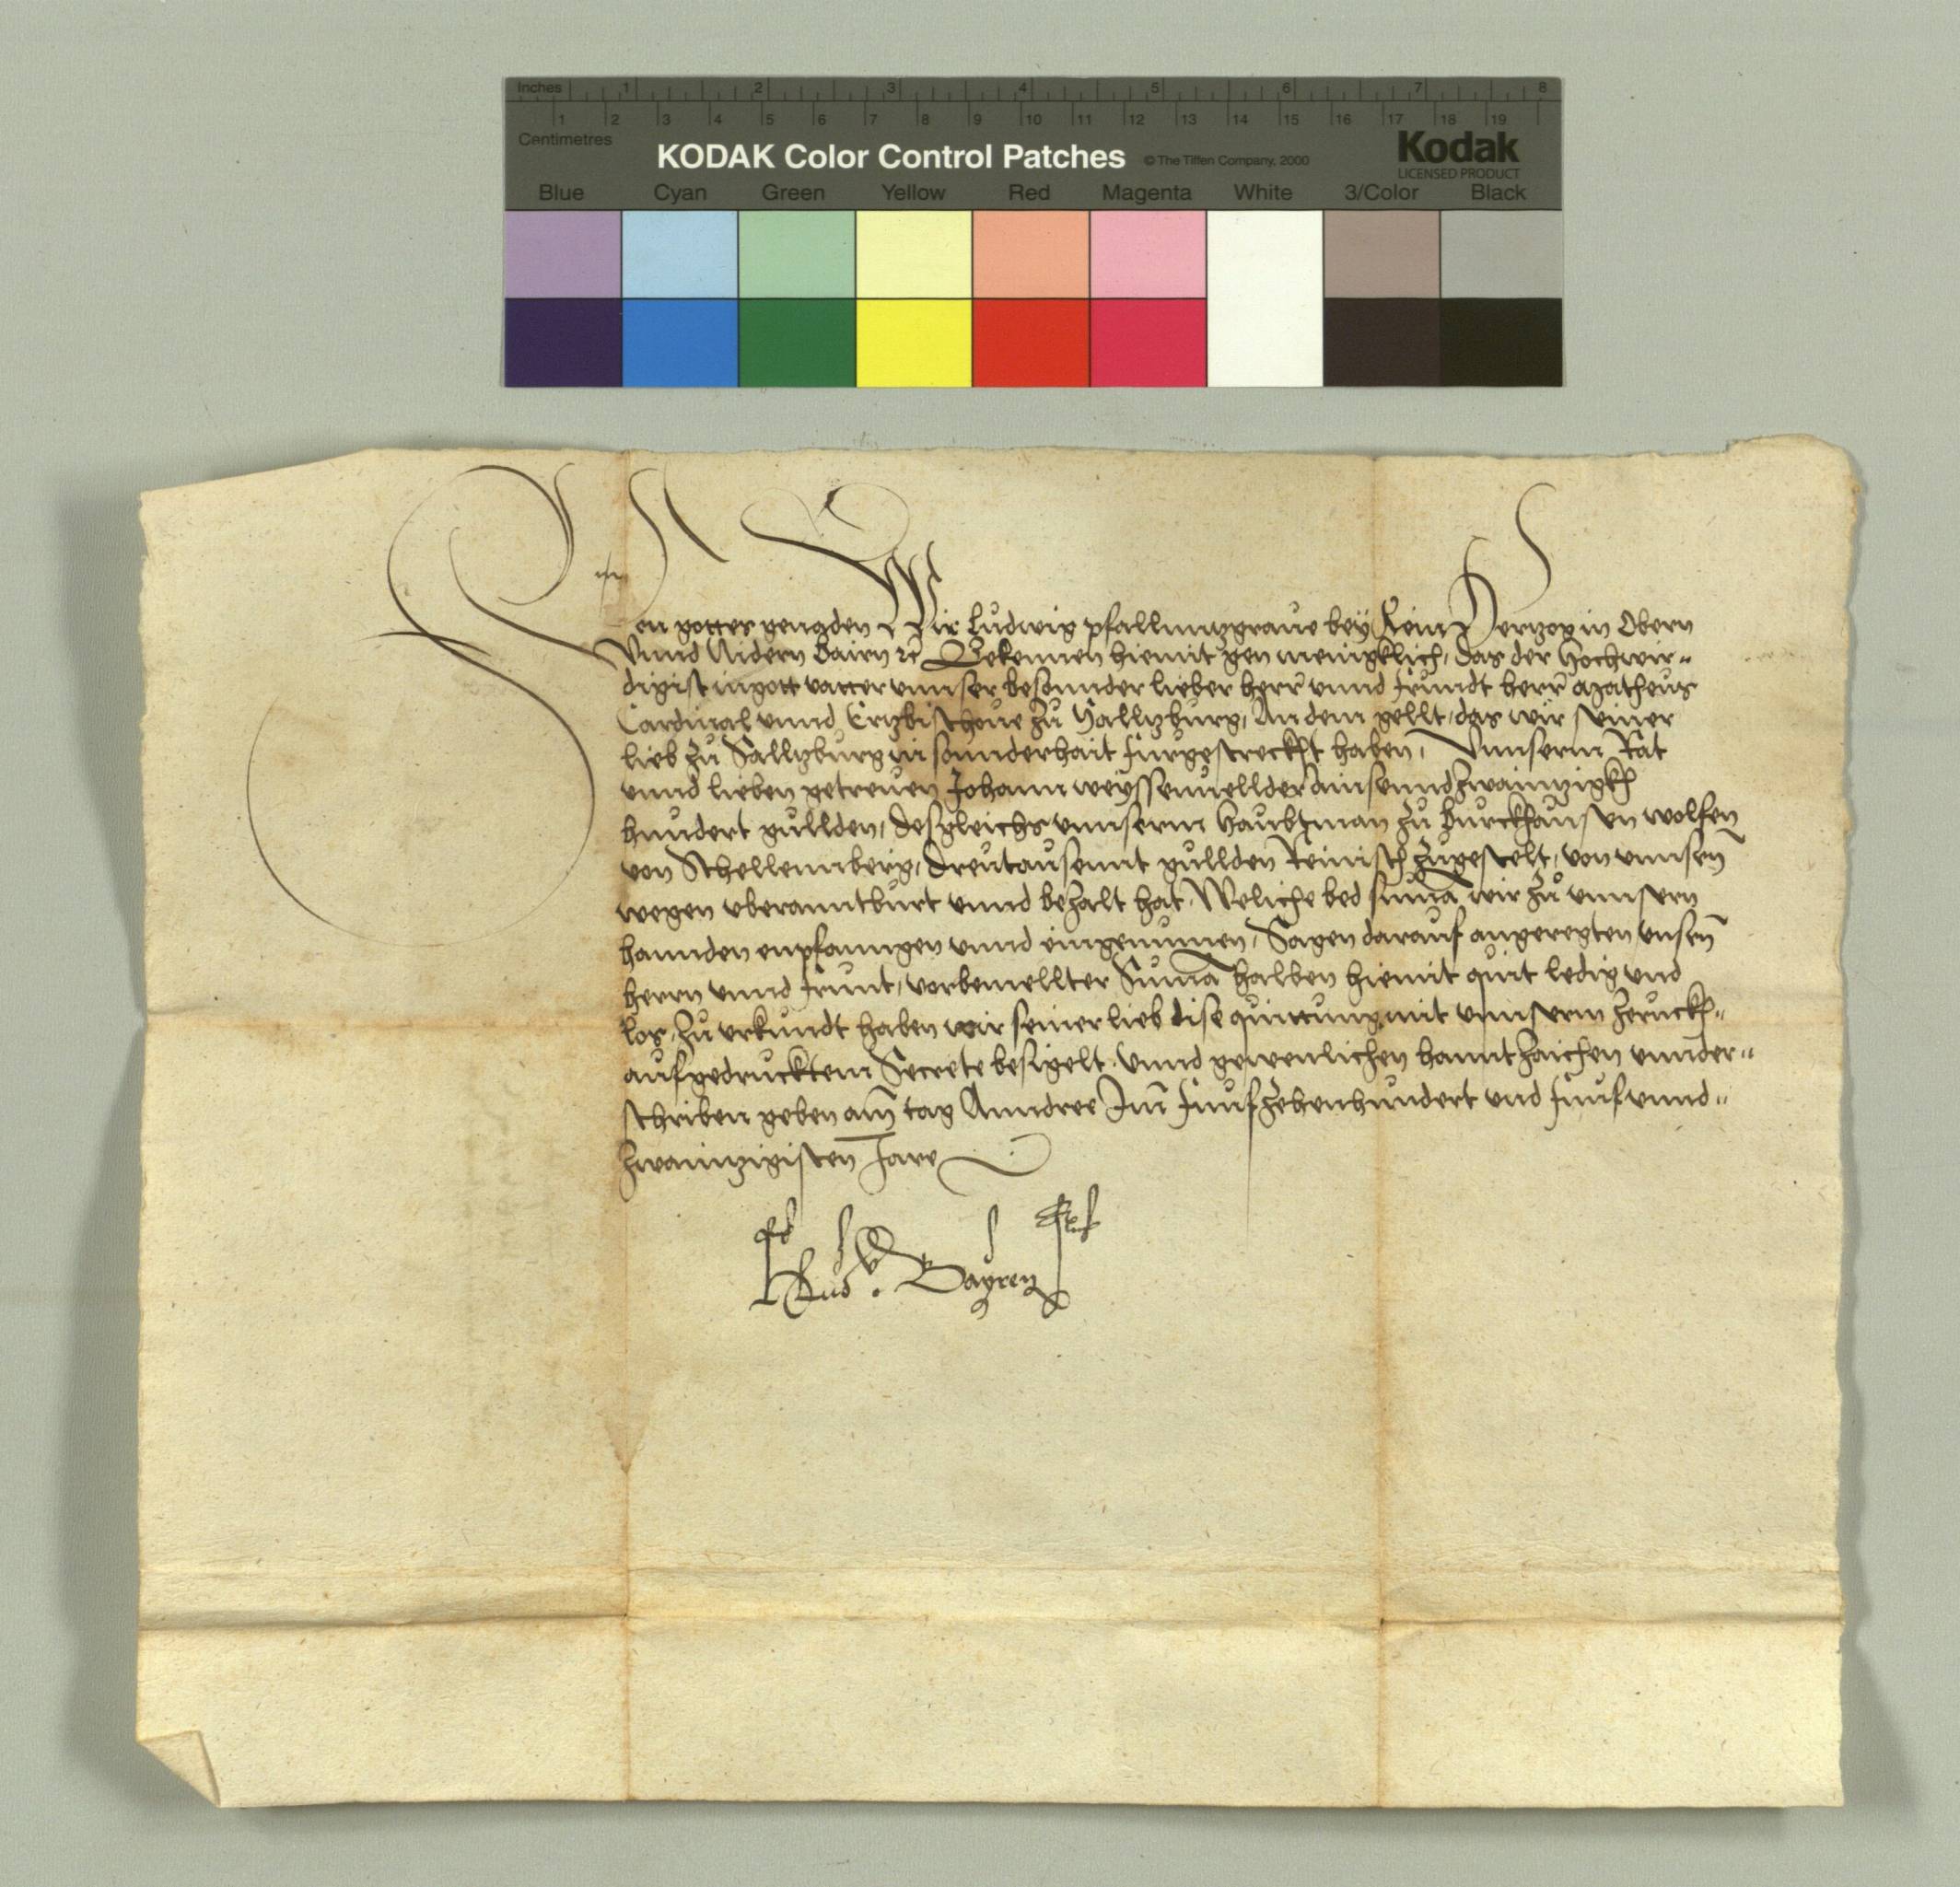 Inches 1 2 3 4 5 6 7 8
1 2 3 4 5 6 7 8 9 10 11 12 13 14 15 16 17 18 19
Centimetres
KODAK Color Control Patches © The Tiffen Company, 2000 Kodak
LICENSED PRODUCT
Blue Cyan Green Yellow Red Magenta White 3/Color Black
Von gottes genaden Wir Ludwig pfallnnzgraue bey Rein Hertzog in Obern
Vnnd Nidern Bairn ꝛc Bekennen hiemit gen menigklich, das der Hochwir„
digist in gott vatter vnnser besonnder lieber herr vnnd frundt herr Matheus
Cardinal vnnd Ertzbischoue zu Salltzburg, An dem gellt, das wir seiner
lieb zu Salltzburg in sonnderhait furgestreckht haben, Vnnserm Rat
vnnd lieben getreuen Johann weyssennellder ainsenndzwainzigkh
hundert gullden, desgleichs vnnserm Haubtman zu Burckhausen wolfen
von Schellennberg, dreutausennt gullden Reinisch zugestelt, von vnnsern
wegen vberanntburt vnnd bezalt hat. Weliche bed suma wir zu vnnsern
hannden enpfanngen vnnd eingenumen, Sagen darauf angeregten vnsern
herrn vnnd frunt, vorbemellter Suma halben hiemit quit ledig vnd
los, zu vrkundt haben wir seiner lieb dise quittung mit vnnserm zeruckh„
aufgedrucktem Secrete besigelt. vnnd gewenlichen hannt zaichen vnnder„
schriben geben am tag Anndree Im funfzehenhundert vnd funf vnnd„
zwainzigisten Jare
Lud v. Bayren